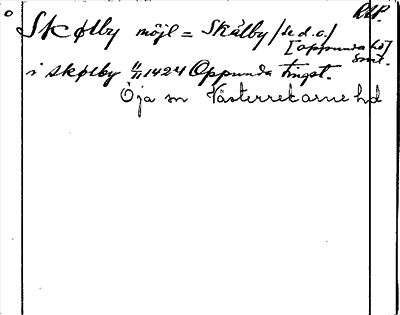 RAP.
Skølby möjl = Skälby /se d.o./
[Oppunda hd]
Sml.
i skølby 11/11 1424 Oppunda tingst.
Öja sn Västerrekarne hd